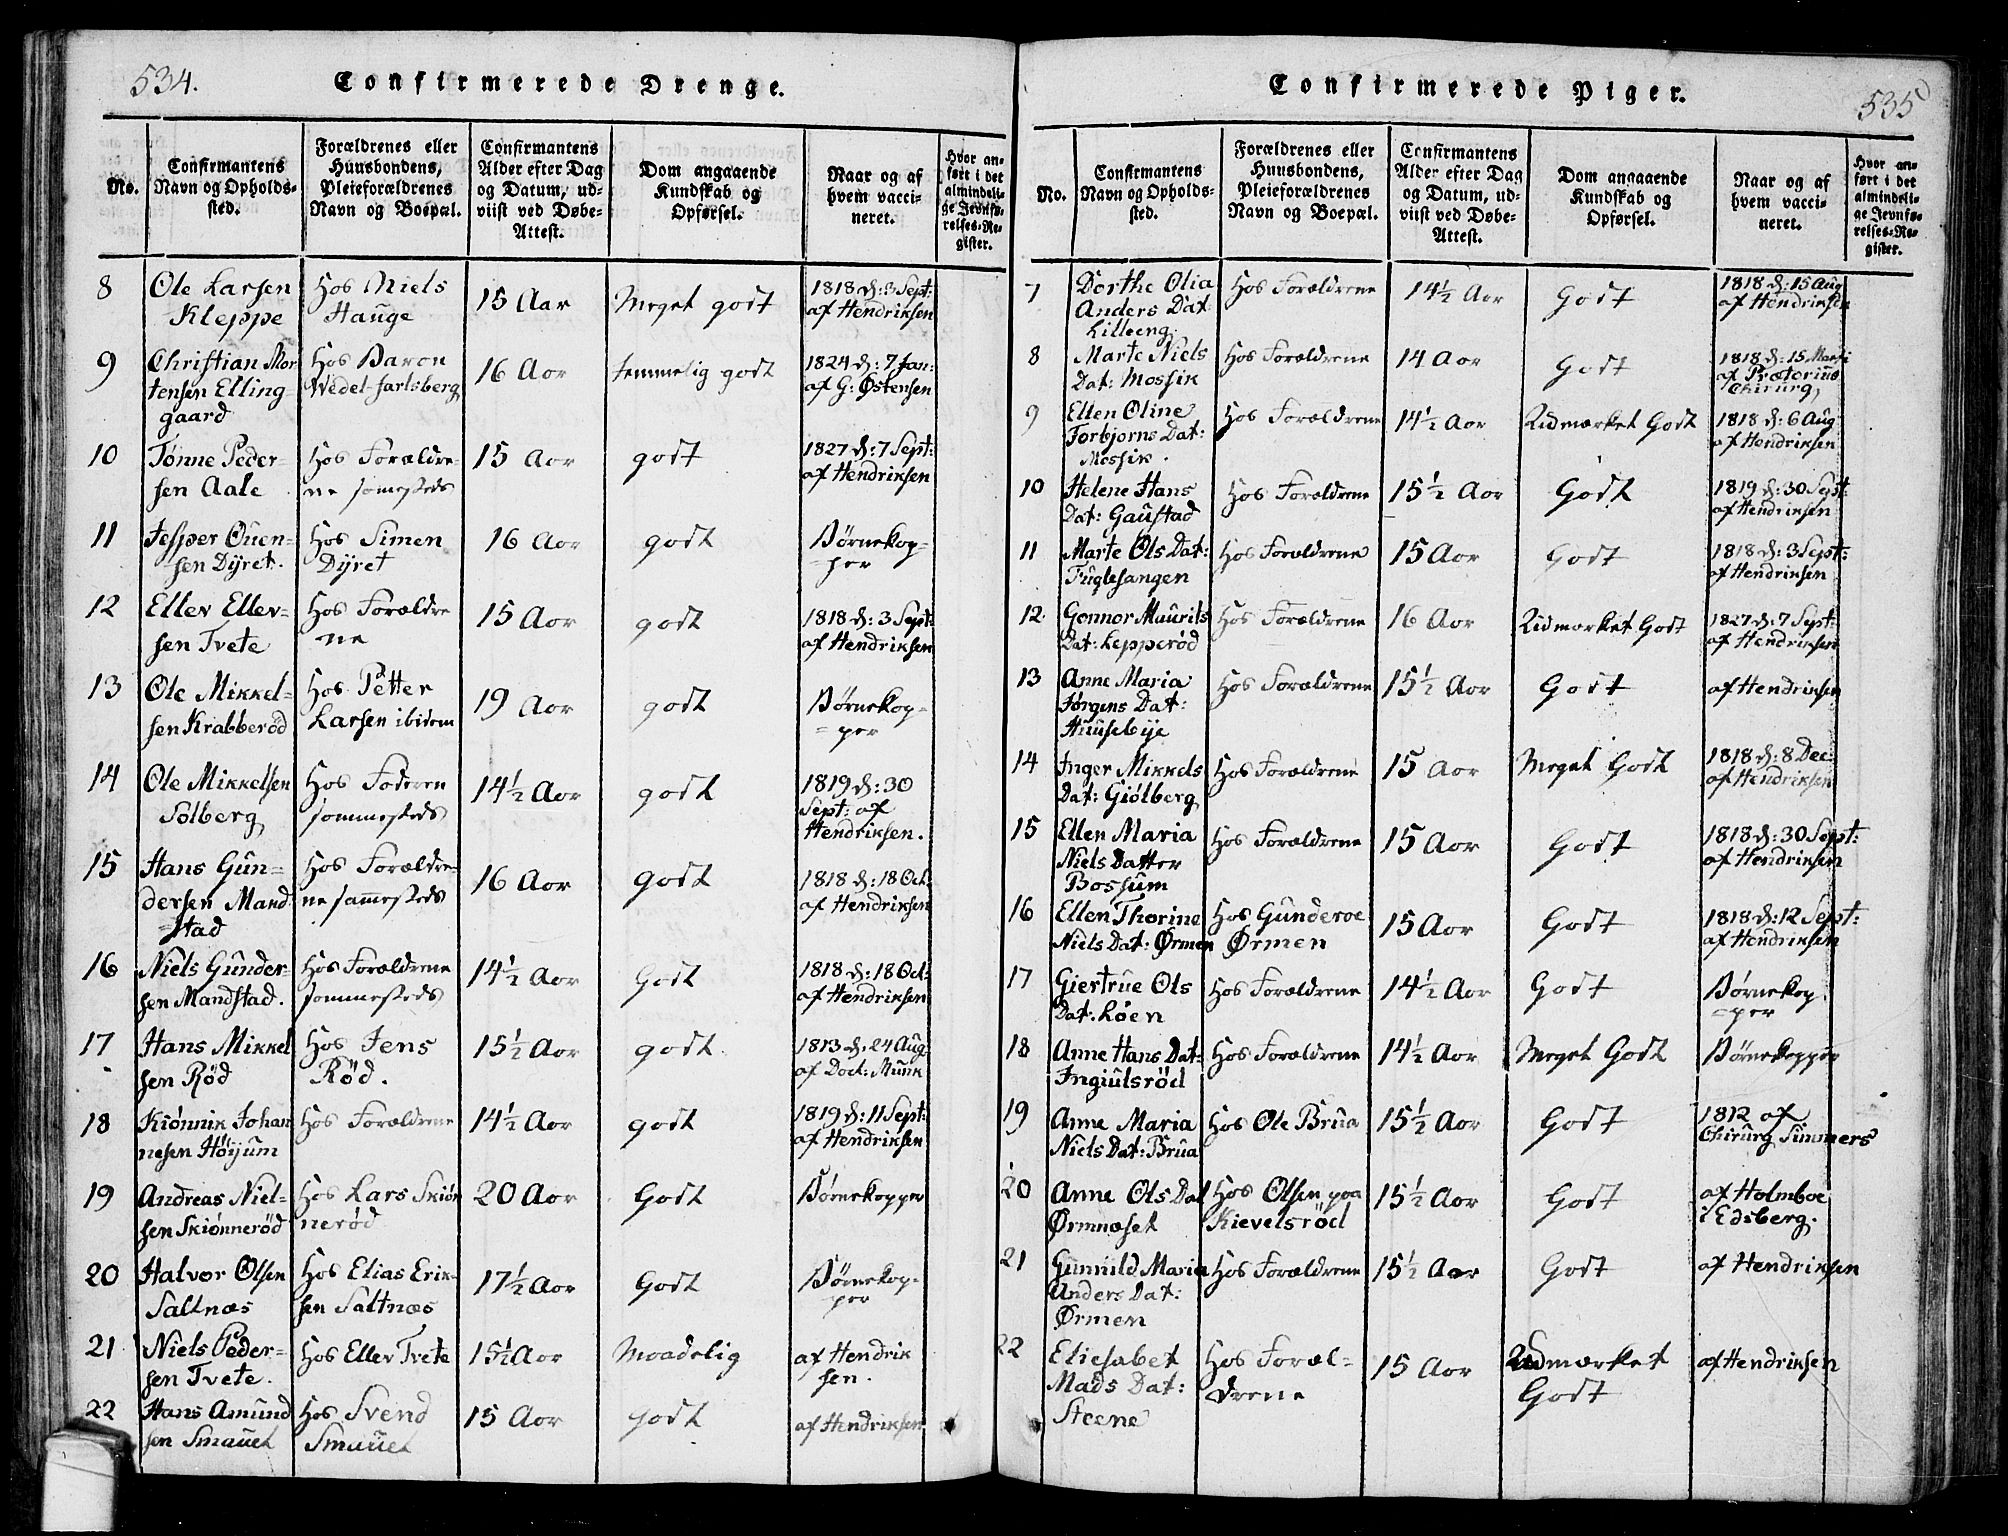 534.
Confirmerede Drenge.
No.
Confirmantens
Navn og Opholds-
sted.
Forældrenes eller
Huusbondens,
Pleieforældrenes
Navn og Boepæl.
Confirmantens
Alder efter Dag
og Datum, ud-
viist ved Døbe-
Attest.
Dom angaaende
Kundskab og
Opførsel.
Naar og af
hvem vacci-
neret.
Hvor an-
ført i det
almindeli-
ge Jevnfø-
relses-Re-
gister.
8
Ole Larsen
Kleppe
Hos Niels
Hauge
15 Aar
Meget godt
1818 d: 3 Sept:
af Hendriksen
9
Christian Mor
tensen Elling
gaard
Hos Baron
Wedel Jarlsberg
16 Aar
temmelig godt
1824 d: 7 Jan:
af G: Østensen
10
Tønne Peder-
sen Aale
Hos Forældre-
ne sammesteds
15 Aar
godt
1827 d: 7 Sept:
af Hendriksen
11
Jesper Ouen-
sen Dyret.
Hos Simen
Dyret
16 Aar
godt
Børnekop-
per
12
Ellev Ellev-
sen Tvete
Hos Forældre
ne
15 Aar
godt
1818 d: 3 Sept:
af Hendriksen
13
Ole Mikkel-
sen Krabberød
Hos Petter
Larsen ibidem
19 Aar
godt
Børnekop-
per
14
Ole Mikkelsen
Solberg
Hos Faderen
sammesteds
14½ Aar
godt
1819 d: 30
Sept: af
Hendriksen.
15
Hans Gun-
dersen Mand
stad
Hos Forældre-
ne sammesteds
16 Aar
godt
1818 d: 18 Oct:
af Hendriksen
16
Niels Gunder-
sen Mandstad.
Hos Forældrene
sammesteds
14½ Aar
Godt
1818 d: 18 Oct:
af Hendriksen
17
Hans Mikkel
sen Rød
Hos Jens
Rød.
15½ Aar
godt
1813 d. 24 Aug
af Doct: Munk
18
Kiønnik Johan
nesen Høyum
Hos Forældrene
14½ Aar
godt
1819 d: 11 Sept:
af Hendriksen
19
Andreas Niel-
sen Skiønnerød
Hos Lars Skiøn
nerød
20 Aar
Godt
Børnekopper
20
Halvor Olsen
Saltnæs
Hos Elias Erik-
sen Saltnæs
17½ Aar
Godt
Børnekop-
per
21
Niels Peder-
sen Tvete.
Hos Ellev Tvete
15½ Aar
Maadelig
af Hendrik
sen.
22
Hans Amund
sen Smauet
Hos Svend
Smauet
15 Aar
Godt
af Hendriksen
Confirmerede Piger.
535
No.
Confirmantens
Navn og Opholds-
sted.
Forældrenes eller
Huusbondens,
Pleieforældrenes
Navn og Boepæl.
Confirmantens
Alder efter Dag
og Datum, ud-
viist ved Døbe-
Attest.
Dom angaaende
Kundskab og
Opførsel.
Naar og af
hvem vacci-
neret.
Hvor an-
ført i det
almindeli-
ge Jevnfø-
relses-Re-
gister.
7
Dorthe Olia
Anders Dat
Lilleeng
Hos Forældrene
14½ Aar
Godt
1818 d: 15 Aug
af Hendriksen
8
Marte Niels
Dat: Mossik
Hos Forældrene
14 Aar
Godt
1818 d: 15 Martii
af Prætorius
Chirurg
9
Ellen Oline
Torbjørns Dat:
Mossik.
Hos Forældrene
14½ Aar
Udmærket Godt
1818 d: 6 Aug
af Hendriksen
10
Helene Hans
Dat: Gaustad
Hos Forældrene
15½ Aar
Godt
1819 d: 30 Sept:
af Hendriksen
11
Marte Ols Dat:
Fuglesangen
Hos Forældrene
15 Aar
Godt
1818 d: 3 Sept:
af Hendriksen
12
Gonnor Maurits
Dat: Lepperød
Hos Forældrene
16 Aar
Udmærket Godt
1827 d: 7 Sept:
af Hendriksen
13
Anne Maria
Jørgens Dat:
Huusebye
Hos Forældrene
15½ Aar
Godt
af Hendriksen
14
Inger Mikkels
Dat: Giølberg
Hos Forældrene
15 Aar
Meget Godt
1818 d: 8 Dec:
af Hendriksen
15
Ellen Maria
Niels Datter
Bossum
Hos Forældrene
15 Aar
Godt
1818 d: 30 Sept:
af Hendriksen
16
Ellen Thorine
Niels Dat: Ørmen
Hos Gunderoe
Ørmen
15 Aar
Godt
1818 d: 12 Sept:
af Hendriksen
17
Giertrue Ols
Dat: Løen
Hos Forældrene
14½ Aar
Godt
Børnekop
per
18
Anne Hans Dat:
Ingiulsrød
Hos Forældrene
14½ Aar
Meget Godt
Børnekopper
19
Anne Maria
Niels Dat: Brua
Hos Ole Brua
15½ Aar
Godt
1812 af
Chirurg Simmers
20
Anne Ols Dat
Ørmnæset
Hos Olsen paa
Kievelsrød
15½ Aar
Godt
af Holmboe
i Edsberg.
21
Gunnild Maria
Anders Dat:
Ørmen
Hos Forældrene
15½ Aar
Godt
af Hendriksen
22
Eliesabet
Mads Dat:
Steene
Hos Foræl-
drene
15 Aar
Udmærket
Godt
af Hendriksen